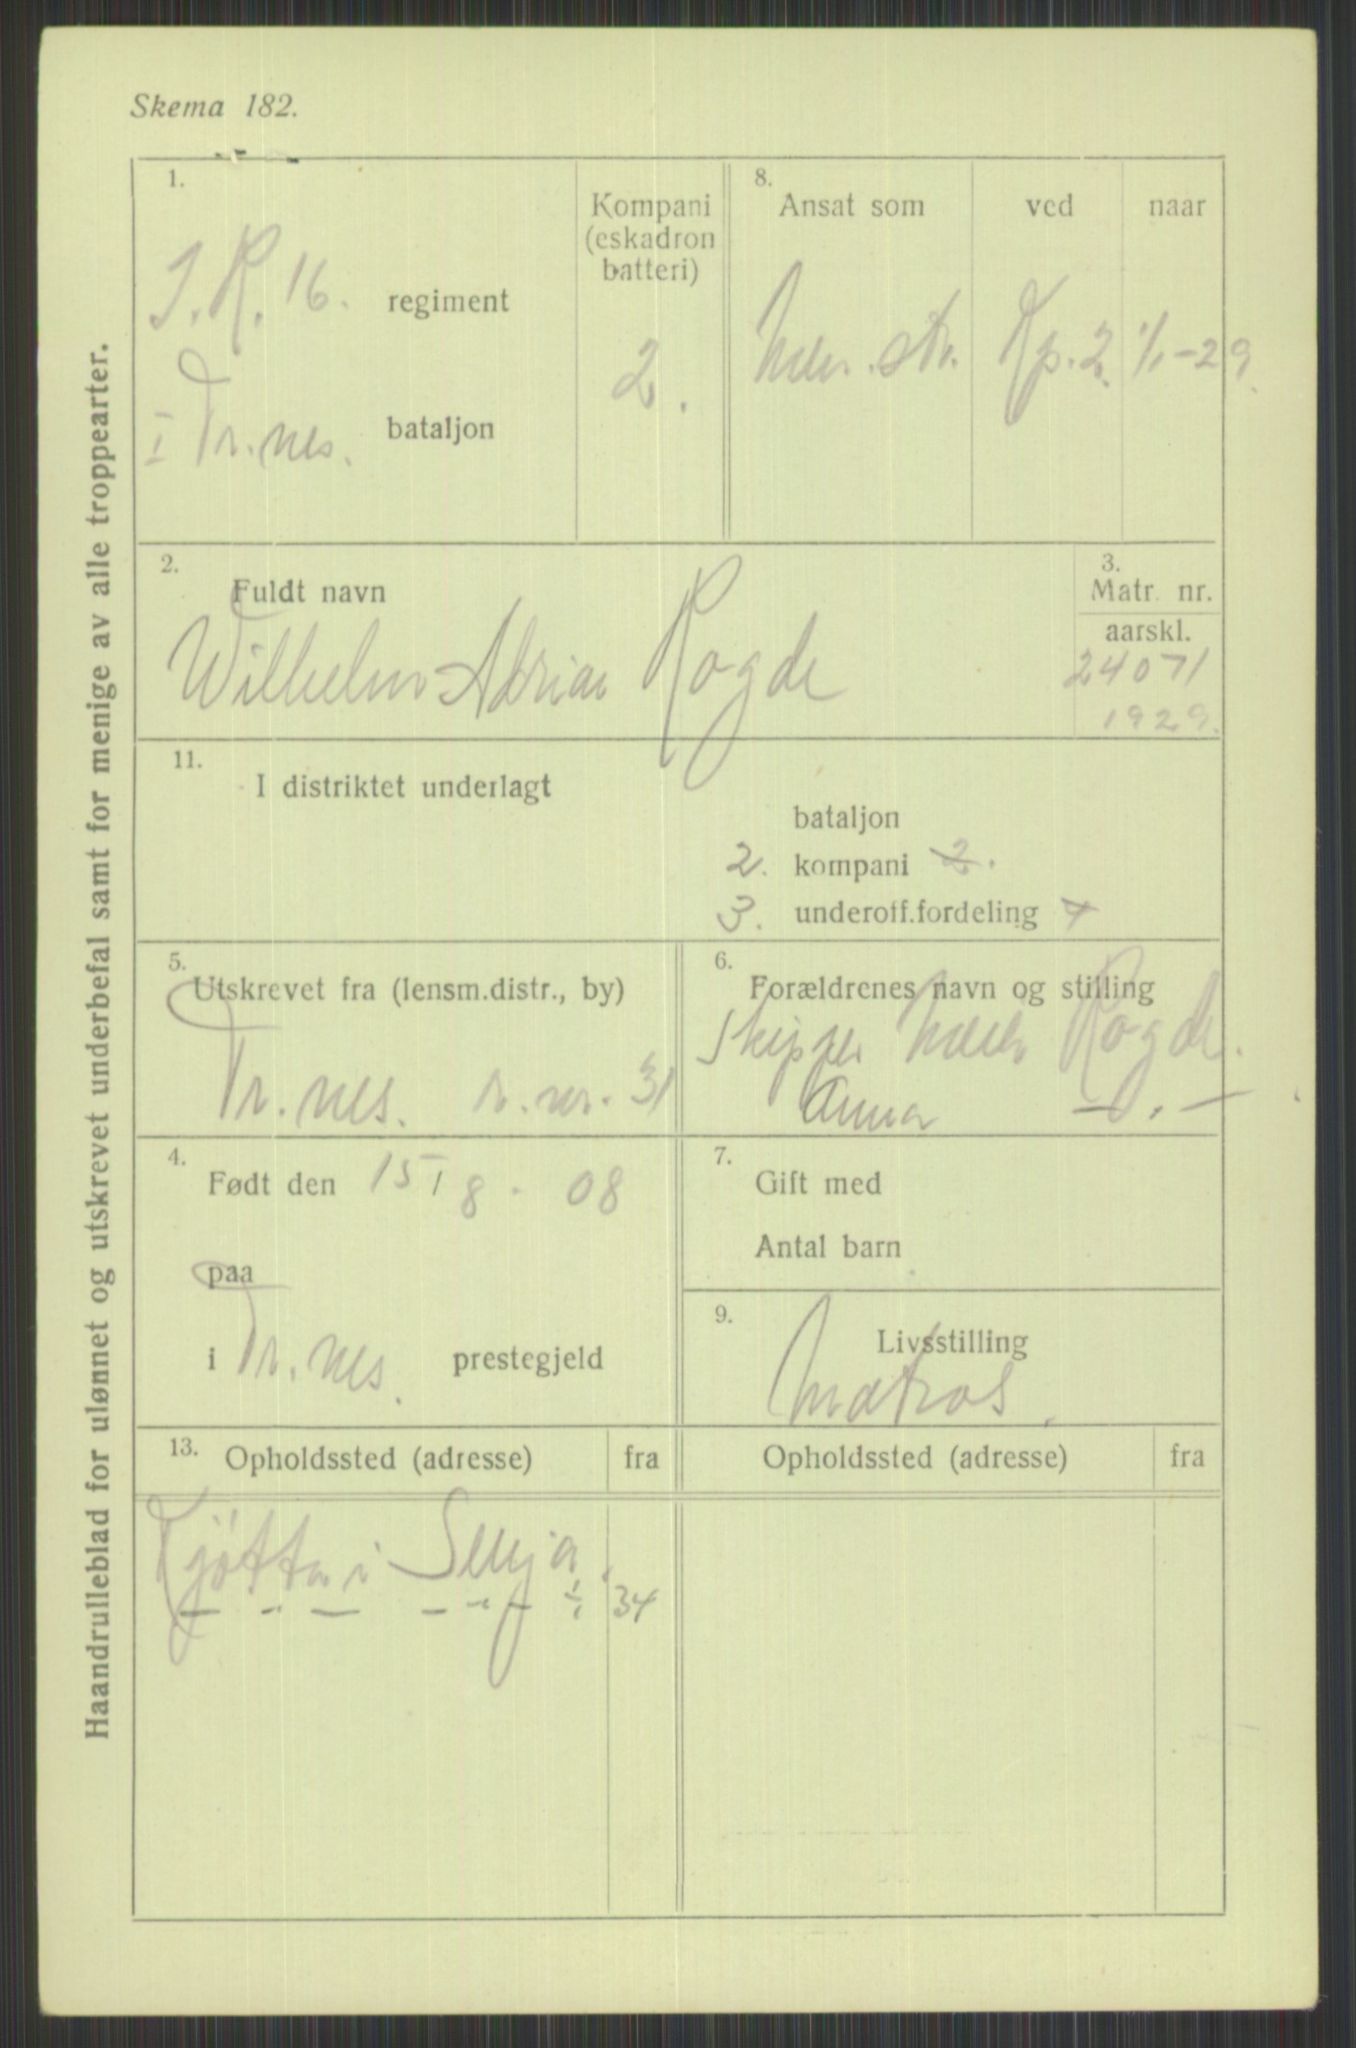 Skema 182.
Haandrulleblad for ulønnet og utskrevet underbefal samt for menige av alle troppearter.
1.
I. R. 16. regiment
I Tr.nes. bataljon
Kompani
(eskadron
batteri)
2.
8.
Ansat som ved naar
Men. str. Kp. 2. 1/1-29.
2.
Fuldt navn
Wilhelm Adrian Rogde
3.
Matr. nr.
aarskl.
24071
1929.
11.
I distriktet underlagt
bataljon
2. kompani 2.
3. underoff.fordeling 4
5.
Utskrevet fra (lensm.distr., by)
Tr. nes. r. nr. 31
6.
Forældrenes navn og stilling
Skipper Rogde.
Anna — " —
4.
Født den 15/8 - 08
paa
i Tr. nes. prestegjeld
7.
Gift med
Antal barn
9.
Livsstilling
Matros.
13.
Opholdssted (adresse) fra
Opholdssted (adresse) fra
Kjøtta i Senja.
— " — — " — 1/1 34